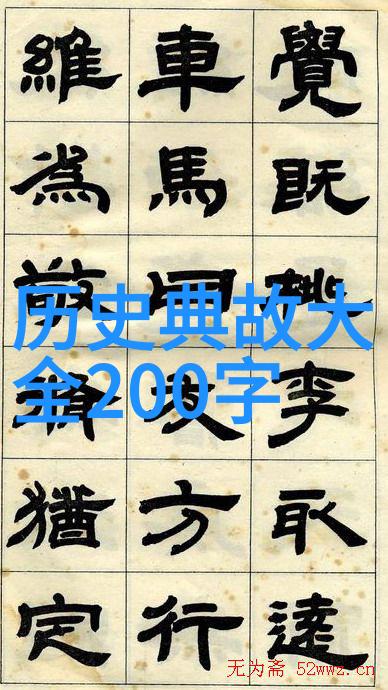 覺既桃李取
車馬同方行
維為敬猶定
历史典故大
全200字
无为斋 52wwz.cn